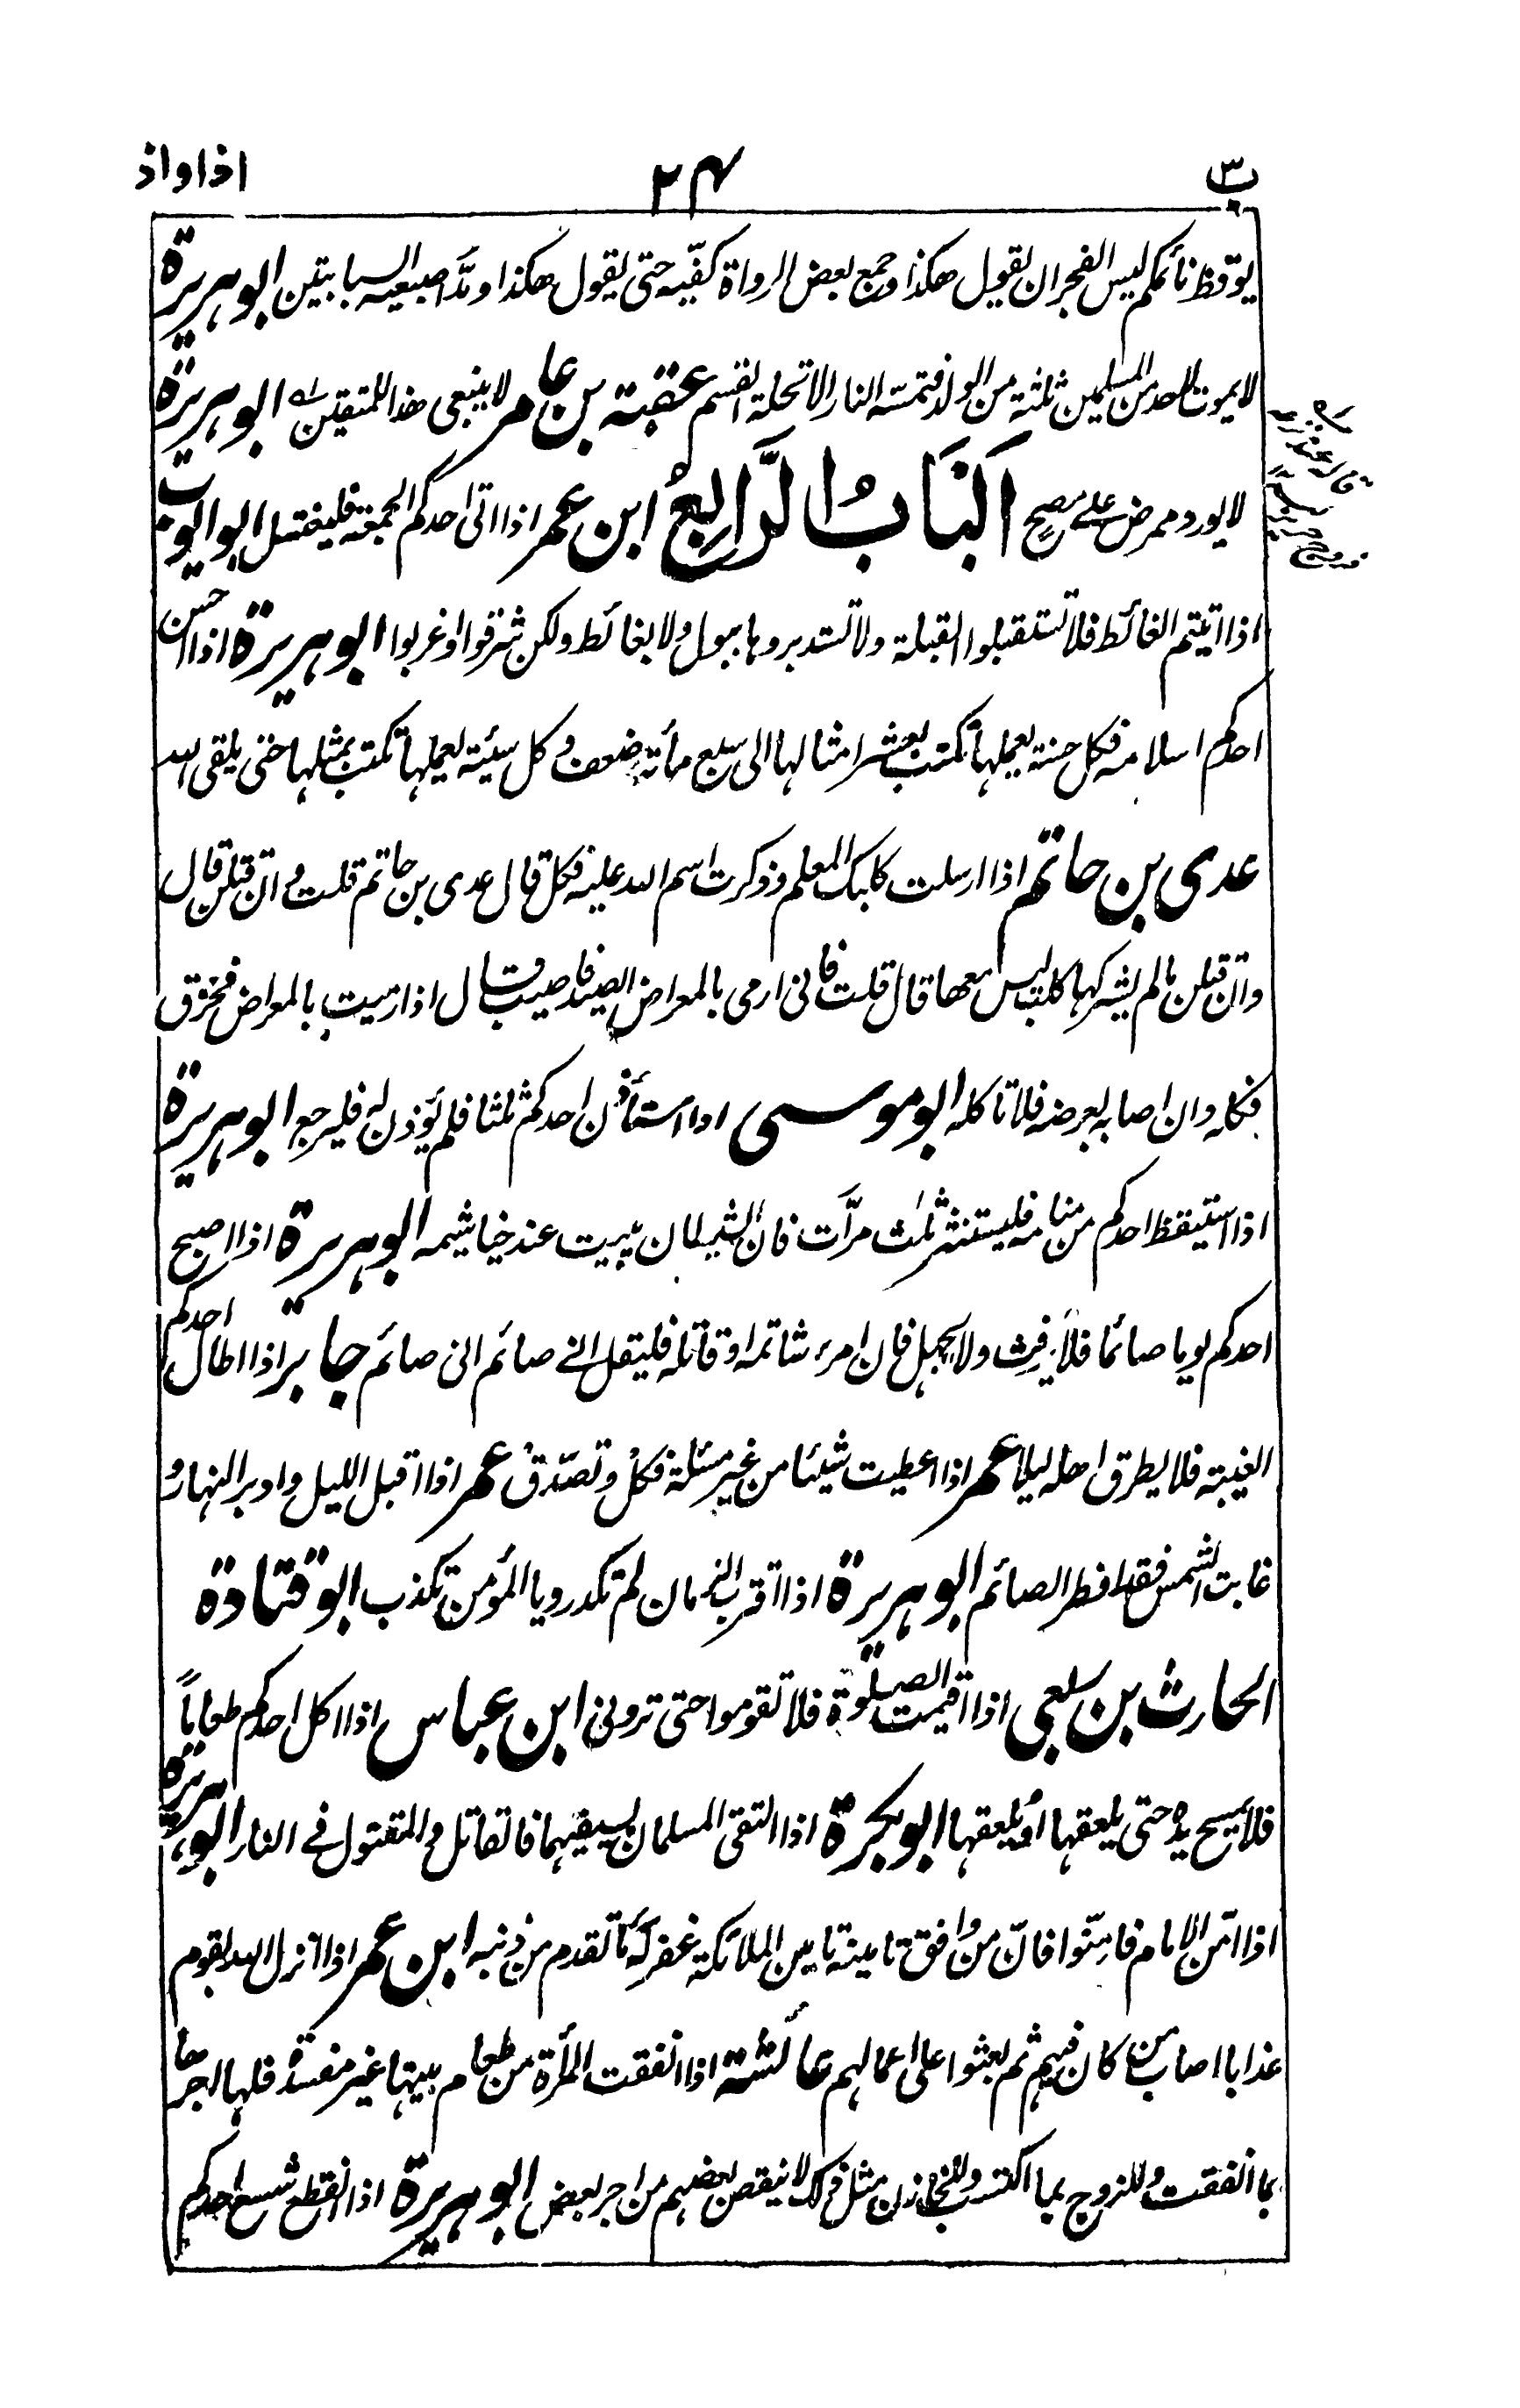 ب٣ ٢٤ اذا واذ
يوقظ نائمكم ليس الفجر ان يقول هكذا وجمع بعض الرواة كفّيه حتى يقول هكذا ومدّ اصبعيه السبابتين ابو هريرة
لا يموت لاحد من المسلمين ثلثة من الولد فتمسّه النار الا تحلة القسم عقبة بن عامر لا ينبغى هذا للمتقين ابو هريرة
لا يورد ممرض على مصح اَلْبَابُ الرَّابِعُ ابن عمر اذا اتى احدكم الجمعة فليغتسل ابو ايوب
اذا اتيتم الغائط فلا تستقبلوا القبلة ولا تستدبروها ببول ولا بغائط ولكن شرقوا او غربوا ابو هريرة اذا احسن
احدكم اسلامه فكل حسنة يعملها تكتب بعشر امثالها الى سبع مأئة ضعف وكل سيئة يعملها تكتب بمثلها حتى يلقى الله
عدى بن حاتم اذا ارسلت كلبك المعلم وذكرت اسم الله عليه فكل قال عدى بن حاتم قلت وان قتلن قال
وان قتلن مالم يشركها كلب ليس معها قال قلت فانى ارمى بالمعراض الصيد فاصيب قال اذا رميت بالمعراض فخزق
فكله وان اصابه بعرضه فلا تاكله ابو موسى اذا استأذن احدكم ثلثا فلم يؤذن له فليرجع ابو هريرة
اذا استيقظ احدكم من منامه فليستنثر ثلث مرّات فان الشيطان يبيت عند خياشيمه ابو هريرة اذا اصبح
احدكم يوما صائما فلا يرفث ولا يجهل فان امرء شاتمه او قاتله فليقل انى صائم انى صائم جابر اذا اطال احدكم
الغيبة فلا يطرق اهله ليلا عمر اذا اعطيت شيئا من غير مسئلة فكل وتصدّق عمر اذا اقبل الليل وادبر النهار و
غابت الشمس فقد افطر الصائم ابو هريرة اذا اقترب الزمان لم تكد رويا المؤمن تكذب ابو قتادة
الحارث بن ربعى اذا اقيمت الصلوة فلا تقوموا حتى ترونى ابن عباس اذا اكل احدكم طعاماً
فلا يمسح يده حتى يلعقها او يلعقها ابو بكرة اذا التقى المسلمان بسيفيهما فالقاتل والمقتول فى النار ابو هريرة
اذا امّن الامام فامّنوا فانّ من وافق تامينه تامين الملائكة غفر له ما تقدم من ذنبه ابن عمر اذا انزل الله بقوم
عذابا اصاب من كان فيهم ثم بعثوا على اعمالهم عائشة اذا انفقت المرأة من طعام بيتها غير مفسدة فلها اجرها
بما انفقت وللزوج بما اكتسب وللخازن مثل ذلك لا ينقص بعضهم من اجر بعض ابو هريرة اذا انقطع شسع احدكم